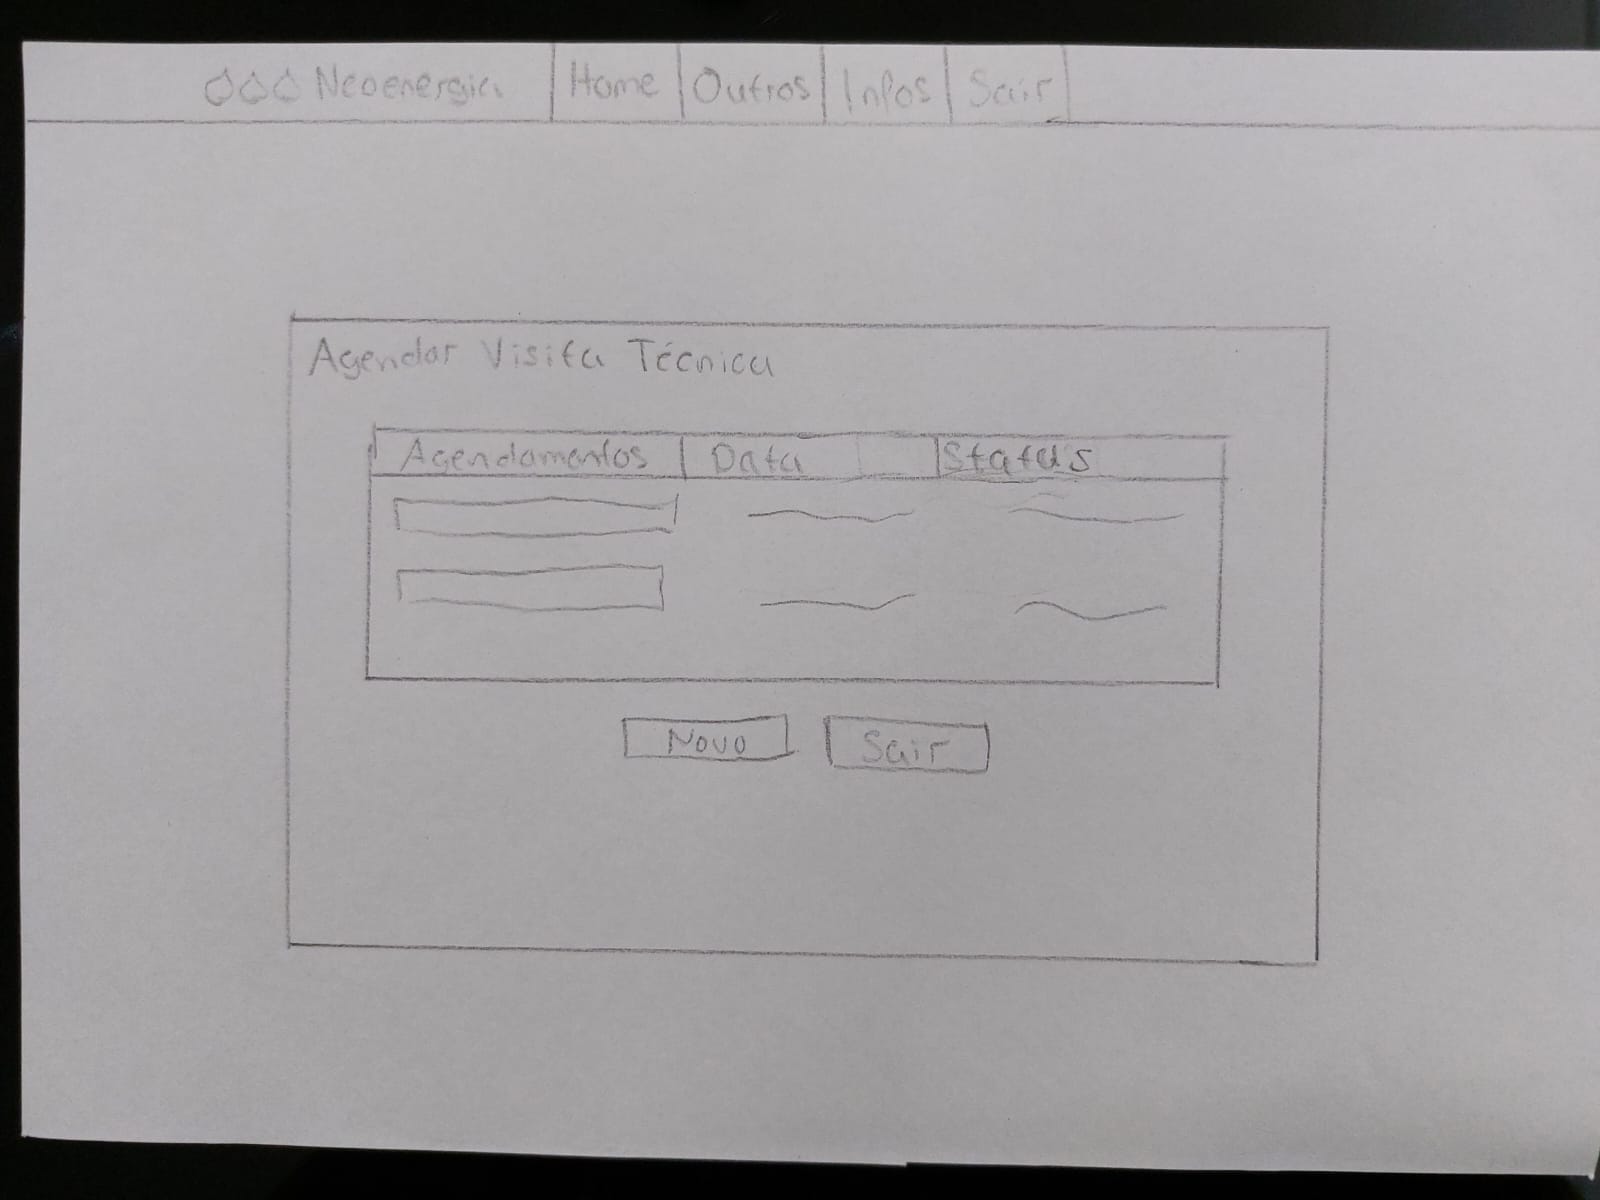 Neoenergia Home Outros Infos Sair
Agendar Visita Técnica
Agendamentos Data Status
Novo Sair